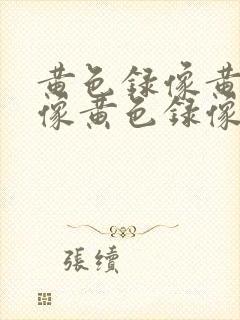 黄色録像黄
像黄色録像
張續